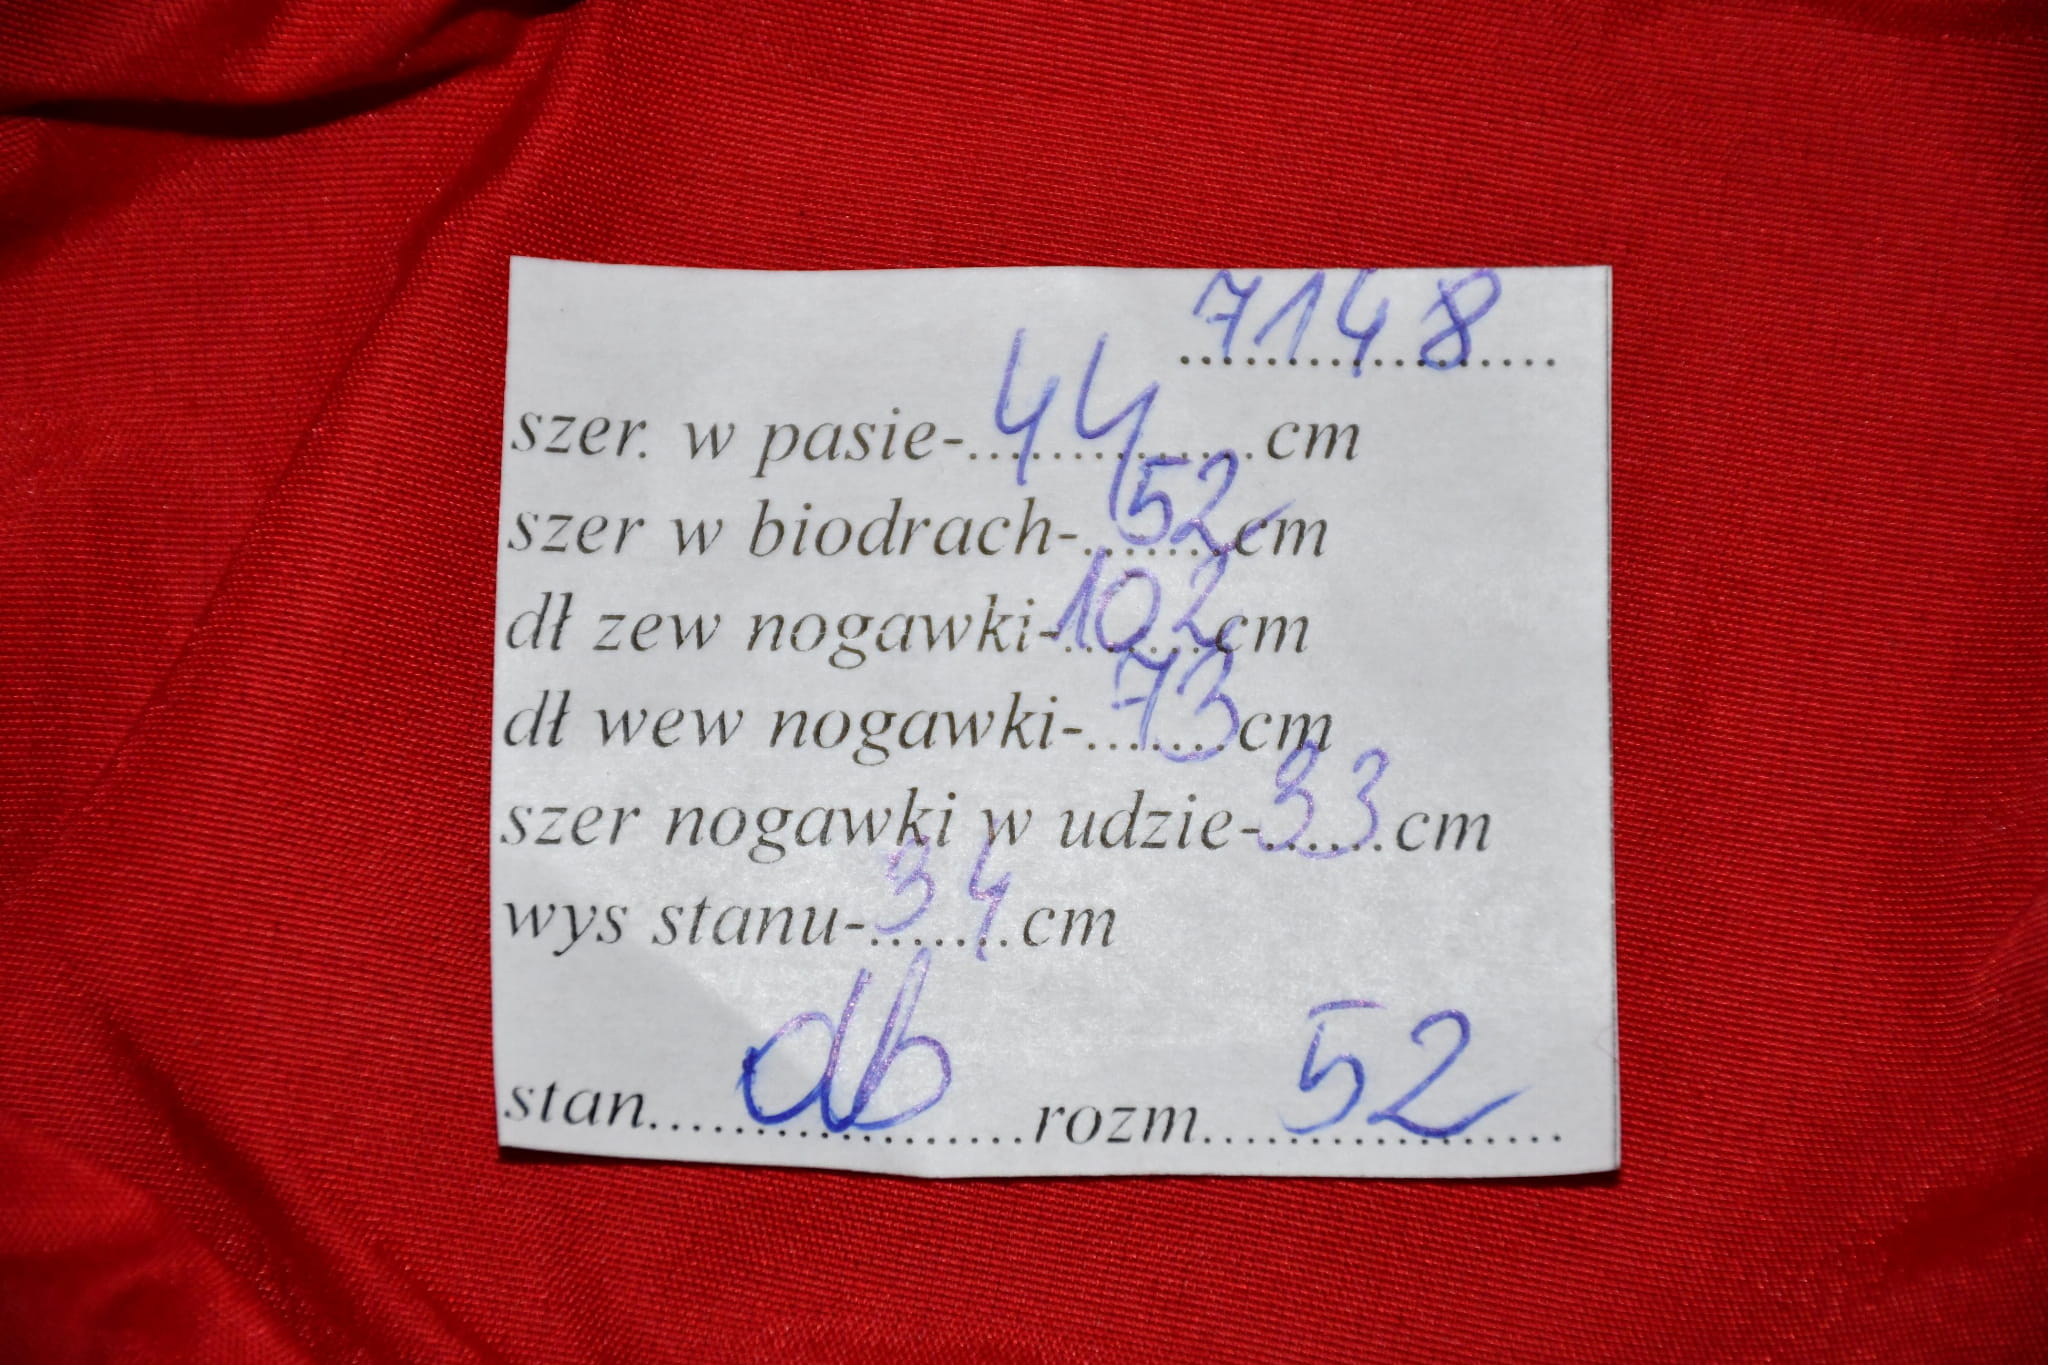 7148
szer. w pasie-44cm
szer w biodrach-52cm
dł zew nogawki-102cm
dł wew nogawki-73cm
szer nogawki w udzie-33cm
wys stanu-34cm
stan....db....rozm....52....